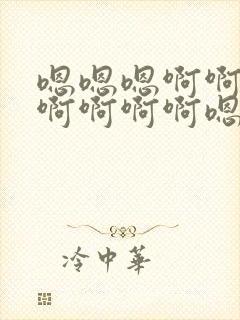 嗯嗯嗯啊啊
啊啊啊啊嗯
冷中華